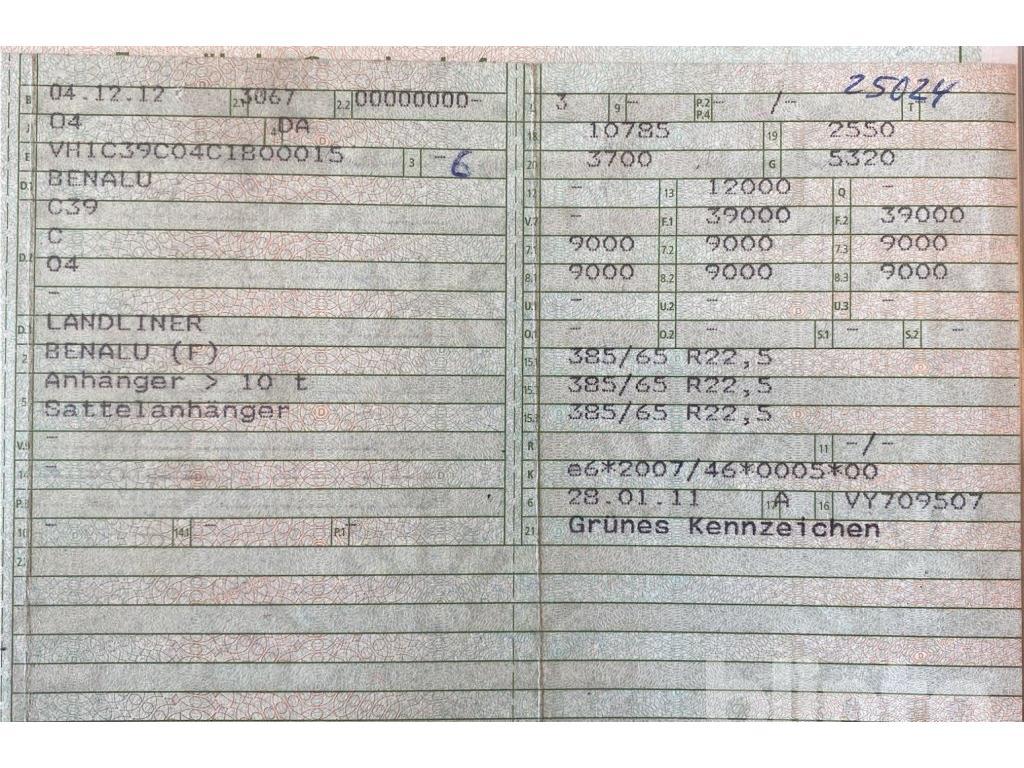 25024
B 04.12.12 2.1 3067 2.2 00000000-
L 3 9 - P.2 P.4 - /- T
J 04 4 DA
18 10785 19 2550
E VH1C39C04C1800015 3 - 6
20 3700 G 5320
D.1 BENALU
12 - 13 12000 Q -
C39
V.7 - F.1 39000 F.2 39000
D.2 C
7.1 9000 7.2 9000 7.3 9000
04
8.1 9000 8.2 9000 8.3 9000
-
U.1 - U.2 - U.3 -
D.3 LANDLINER
O.1 - O.2 - S.1 - S.2 -
2 BENALU (F)
15.1 385/65 R22,5
Anhänger > 10 t
15.2 385/65 R22,5
5 Sattelanhänger
15.3 385/65 R22,5
V.9 -
R 11 -/-
14 -
K e6*2007/46*0005*00
P.3
6 28.01.11 17 A 16 VY709507
10 - 14.1 - P.1 -
21 Grünes Kennzeichen
22